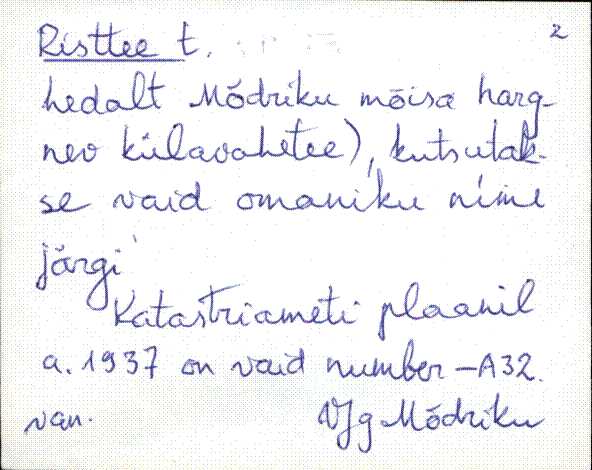 Risttee t. 2
hedalt Mõdriku mõisa harg-
nev külavahetee), kutsutak-
se vaid omaniku nime
järgi
Katastriameti plaanil
a. 1937 on vaid number – A32.
van. VJg Mõdriku